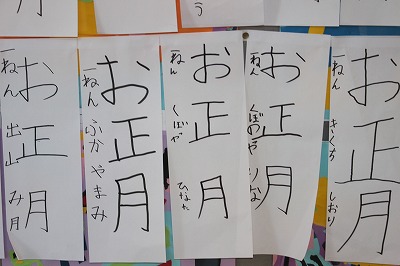 う
月
お正月
一ねん 出山 み月
お正月
一ねん ふかやまみ
お正月
一ねん くぼや ひなた
お正月
一ねん くぼのや りな
お正月
一ねん きくち しおり